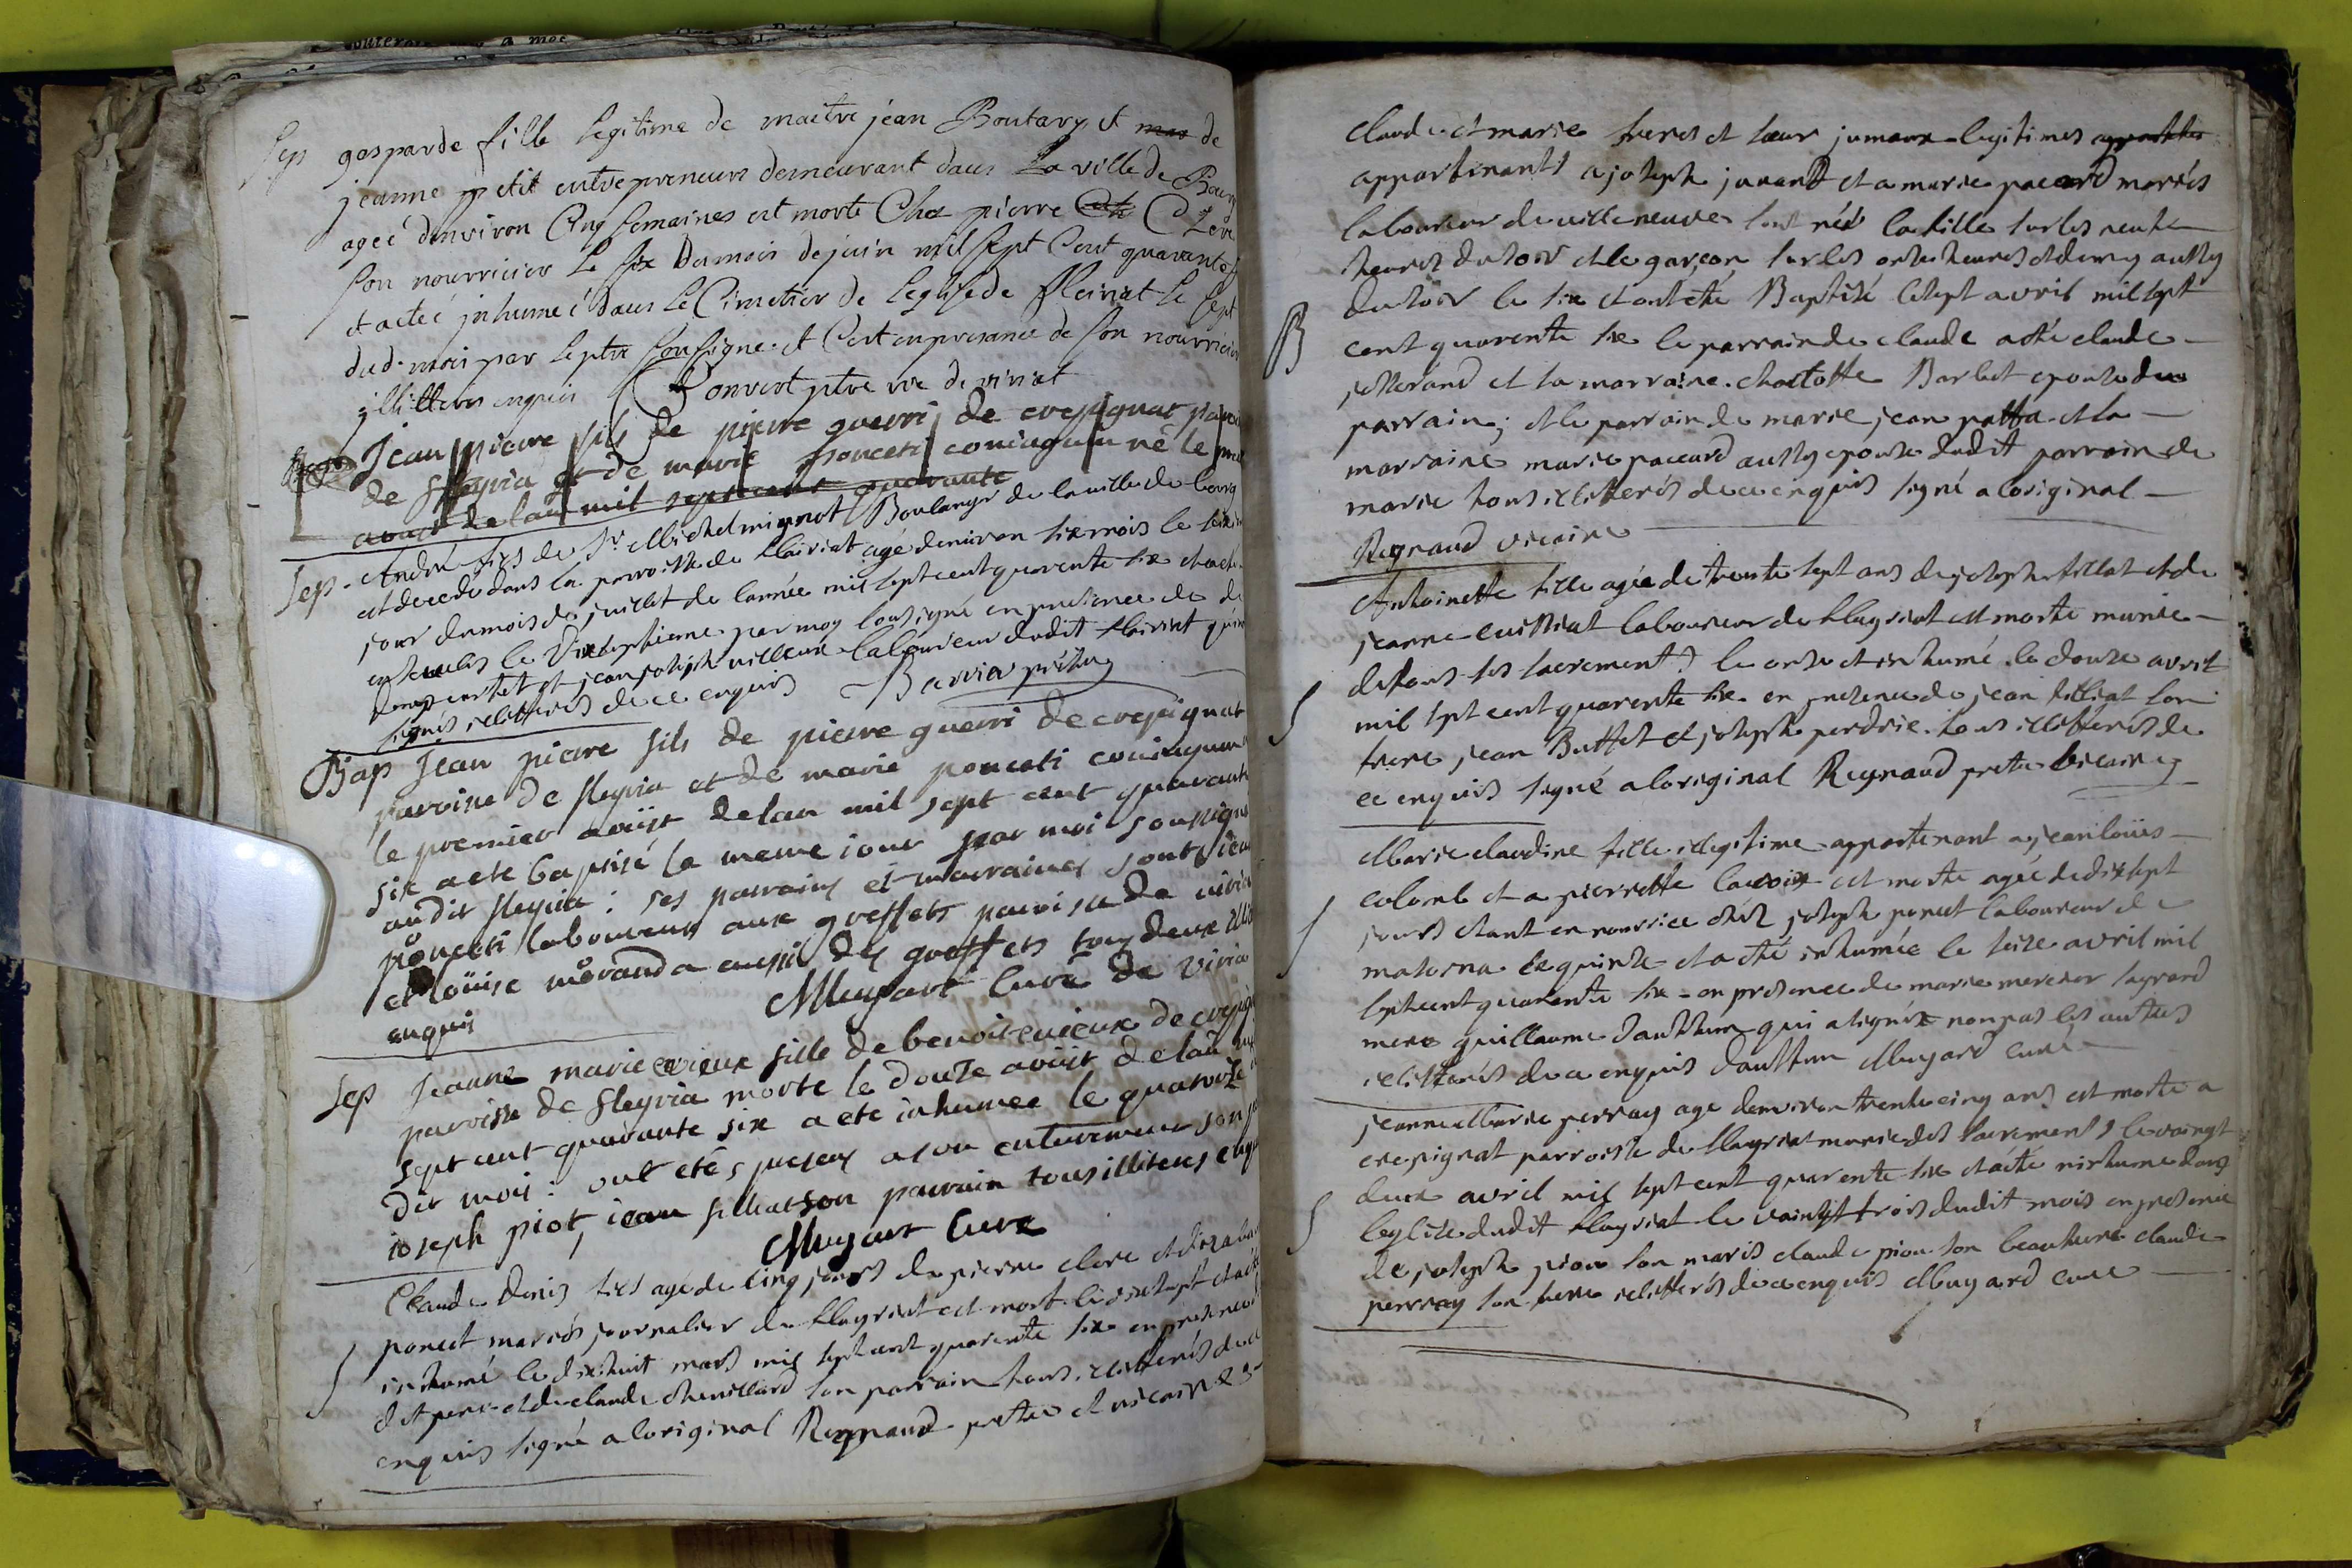 Sep gasparde fille legitime de maitre jean Boutary et mar de
jeanne petit entrepreneurs demeurant dans La ville de Bourg
ageé denviron Cinq semaines est morte Chez pierre
son nourricier Le six du mois de juin mil sept Cent quarante
et a eteé inhumeé dans Le Cimetier de Leglise de fleiriat Le sept
dud. mois par Le ptre sousigne et C'est en presance de son nourricier
illitteré enquis Convert ptre vre de viriat
Jean pierre fils de pierre guerri de crepignat paroi
de fleyria et de marie ponceti coniugum né le pre
aoust de lan mil sept cent quarante
Sep. André fils de Sr Michel mignot Boulanger de la ville de bourg
est decedé dans la parroisse de flairiat agé denviron six mois le
jour du mois de juillet de lannée mil sept cent quarente six et a ete
le dixseptieme par moy sousigné en presence de
et jean joseph laboureur dudit flairiat
signés illitterés de ce enquis Barvier prêtre
Bap Jean pierre fils de pierre guerri de crepignat
paroisse de fleyria et de marie ponceti coniugum
le premier aoüst de lan mil sept cent quarante
six a ete baptisé le meme iour par moi soussigné
audit fleyria : ses parrains et marraines sont iean
ponceti laboureur aux greffets paroisse de viria
et loüise morand a aussi des greffets tous deux illi
enquis Mugart Curé de viria
Sep Jeanne marie evieux fille de benoit evieux de crepig
paroisse de fleyria morte le douze aoüst de lan mil
sept cent quarante six a ete inhumée le quatorze
dit mois : ont etés presens a son enterrement son
ioseph piot, iean filliat son parrain tous illiteres enq
Mugart Curé
Claude Denis fils agé de cinq jours de pierre clere et
poncet mariés journalier de flayriat est mort le dixsept et a eté
inhumé le dixhuit mars mil sept cent quarente six en presence
dit pere et de claude chevillard son parrain tous illitterés de ce
enquis signé a loriginal Reynaud prêtre et vicaire
Claude et marie freres et sœur jumeaux legitimes
appartenants a joseph jurand et a marie pacard mariés
laboureur de villeneuve sont nés la fille sur les neuf
heures du soir et le garçon sur les onze heures et demy aussy
du soir le six et ont eté Baptisé le sept avril mil sept
B cent quarente six le parrain de claude a eté claude
et sa marraine charlotte Barbet epouse du
parrain; et le parrain de marie jean patta et la
marraine marie paccard aussy epouse dudit parrain de
marie tous illitterés de ce enquis signé a loriginal
Reynaud vicaire
Antoinette fille agée de trente sept ans de joseph fillat et de
jeanne cuissiat laboureur de flayriat est morte munie
de tous ses sacrements le onze et inhumé le douze avril
S mil sept cent quarente six en presence de jean filliat son
frere jean Buffet et joseph perdrix tous illitterés de
ce enquis signé a loriginal Reynaud pretre vicaire
Marie claudine fille illegitime appartenant a jean loüis
colomb et a pierrette lacroix est morte agée de dixsept
S jours etant en nourrice chez joseph poncet laboureur de
materna le quinze et a eté inhumée le seize avril mil
sept cent quarente six en presence de marie mercier sa grand
mere guillaume dauthun qui a signé non pas les autres
illitterés de ce enquis dauthun Mugard curé
jeanne Marie perray age denviron trente cinq ans est morte a
crepignat parroisse de flayriat munie des sacrements le vaingt
deux avril mil sept cent quarente six et a eté inhumé dans
S leglise dudit flayriat le vaingt trois dudit mois en presence
de joseph piou son maris claude piou son beaufrere claude
perray son frere illitterés de ce enquis Mugard curé